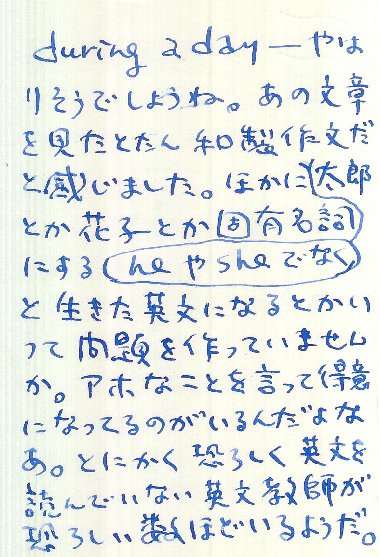 during a day ― やは
りそうでしょうね。あの文章
を見たとたん和製作文だ
と感じました。ほかに太郎
とか花子とか固有名詞
にする(heやsheでなく)
と生きた英文になるとかい
って問題を作っていません
か。アホなことを言って得意
になってるのがいるんだよな
あ。とにかく恐ろしく英文を
読んでいない英文教師が
恐ろしい数ほどいるようだ。